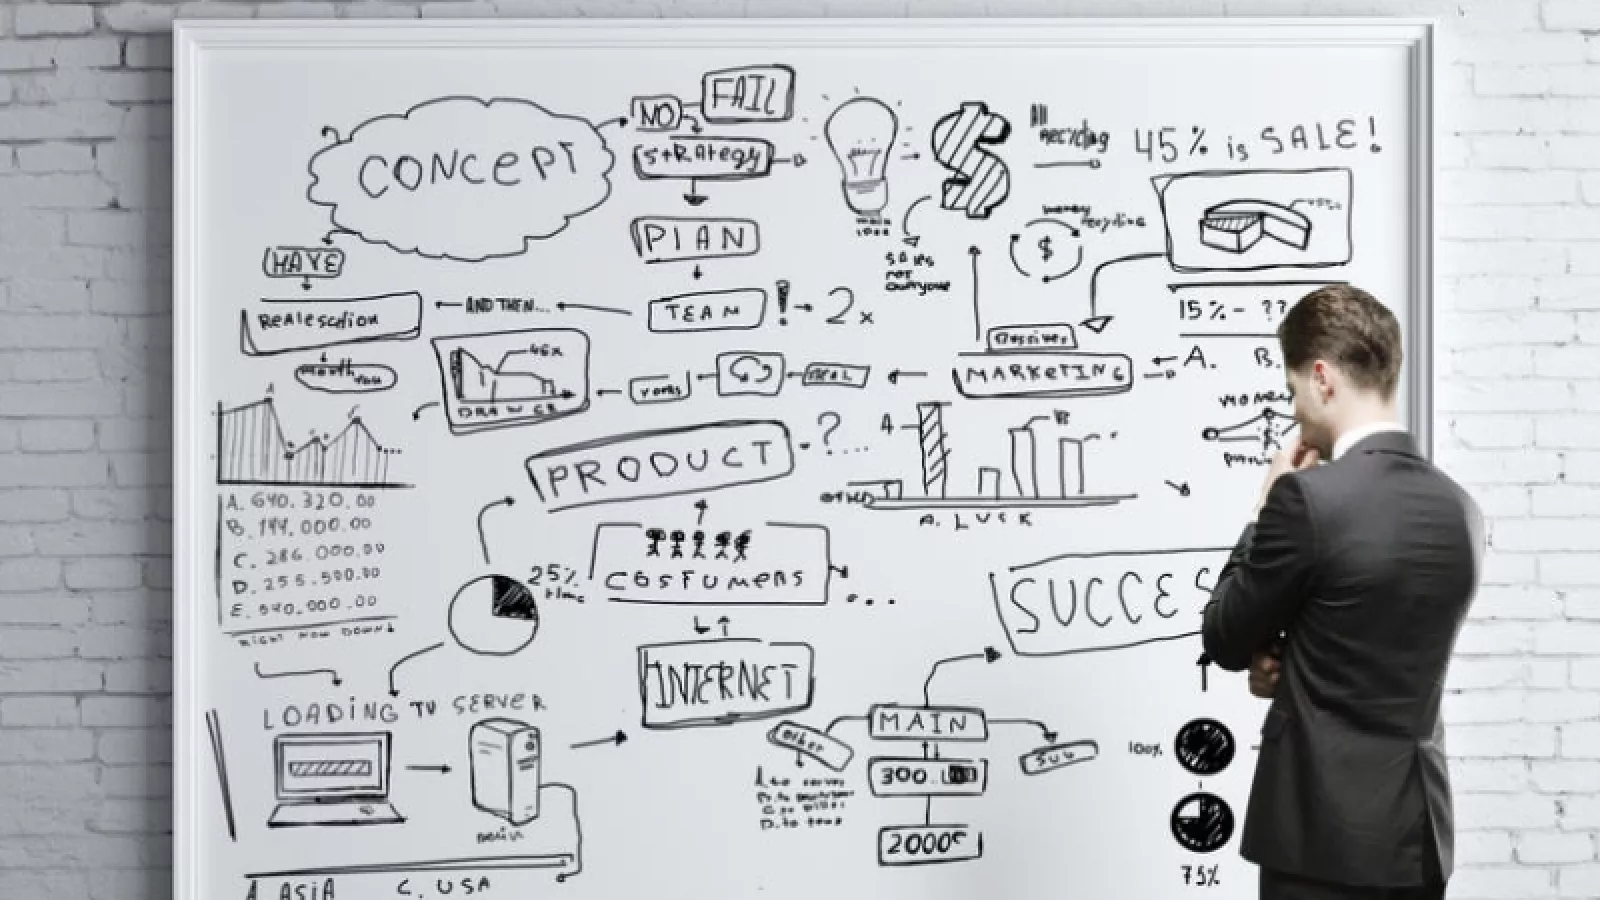 FAIL
NO
CONCEPT
StRAtegy
45% is SALE!
RECYCLING
PLAN
HAVE
money
recycling
SALES
not
everyone
AND THEN...
TEAM ! 2x
15% - ??
A. B.
MARKETING
REAL
PRODUCT - ? ...
A
A. LUCK
A. 640.320.00
B. 144.000.00
C. 286.000.00
D. 255.500.00
E. 040.000.00
RIGHT NOW DOWN!
25%
COSTUMERS
...
SUCCES
INTERNET
LOADING TV SERVER
MAIN
other
SUB
300.
100%
2000€
75%
A. ASIA C. USA